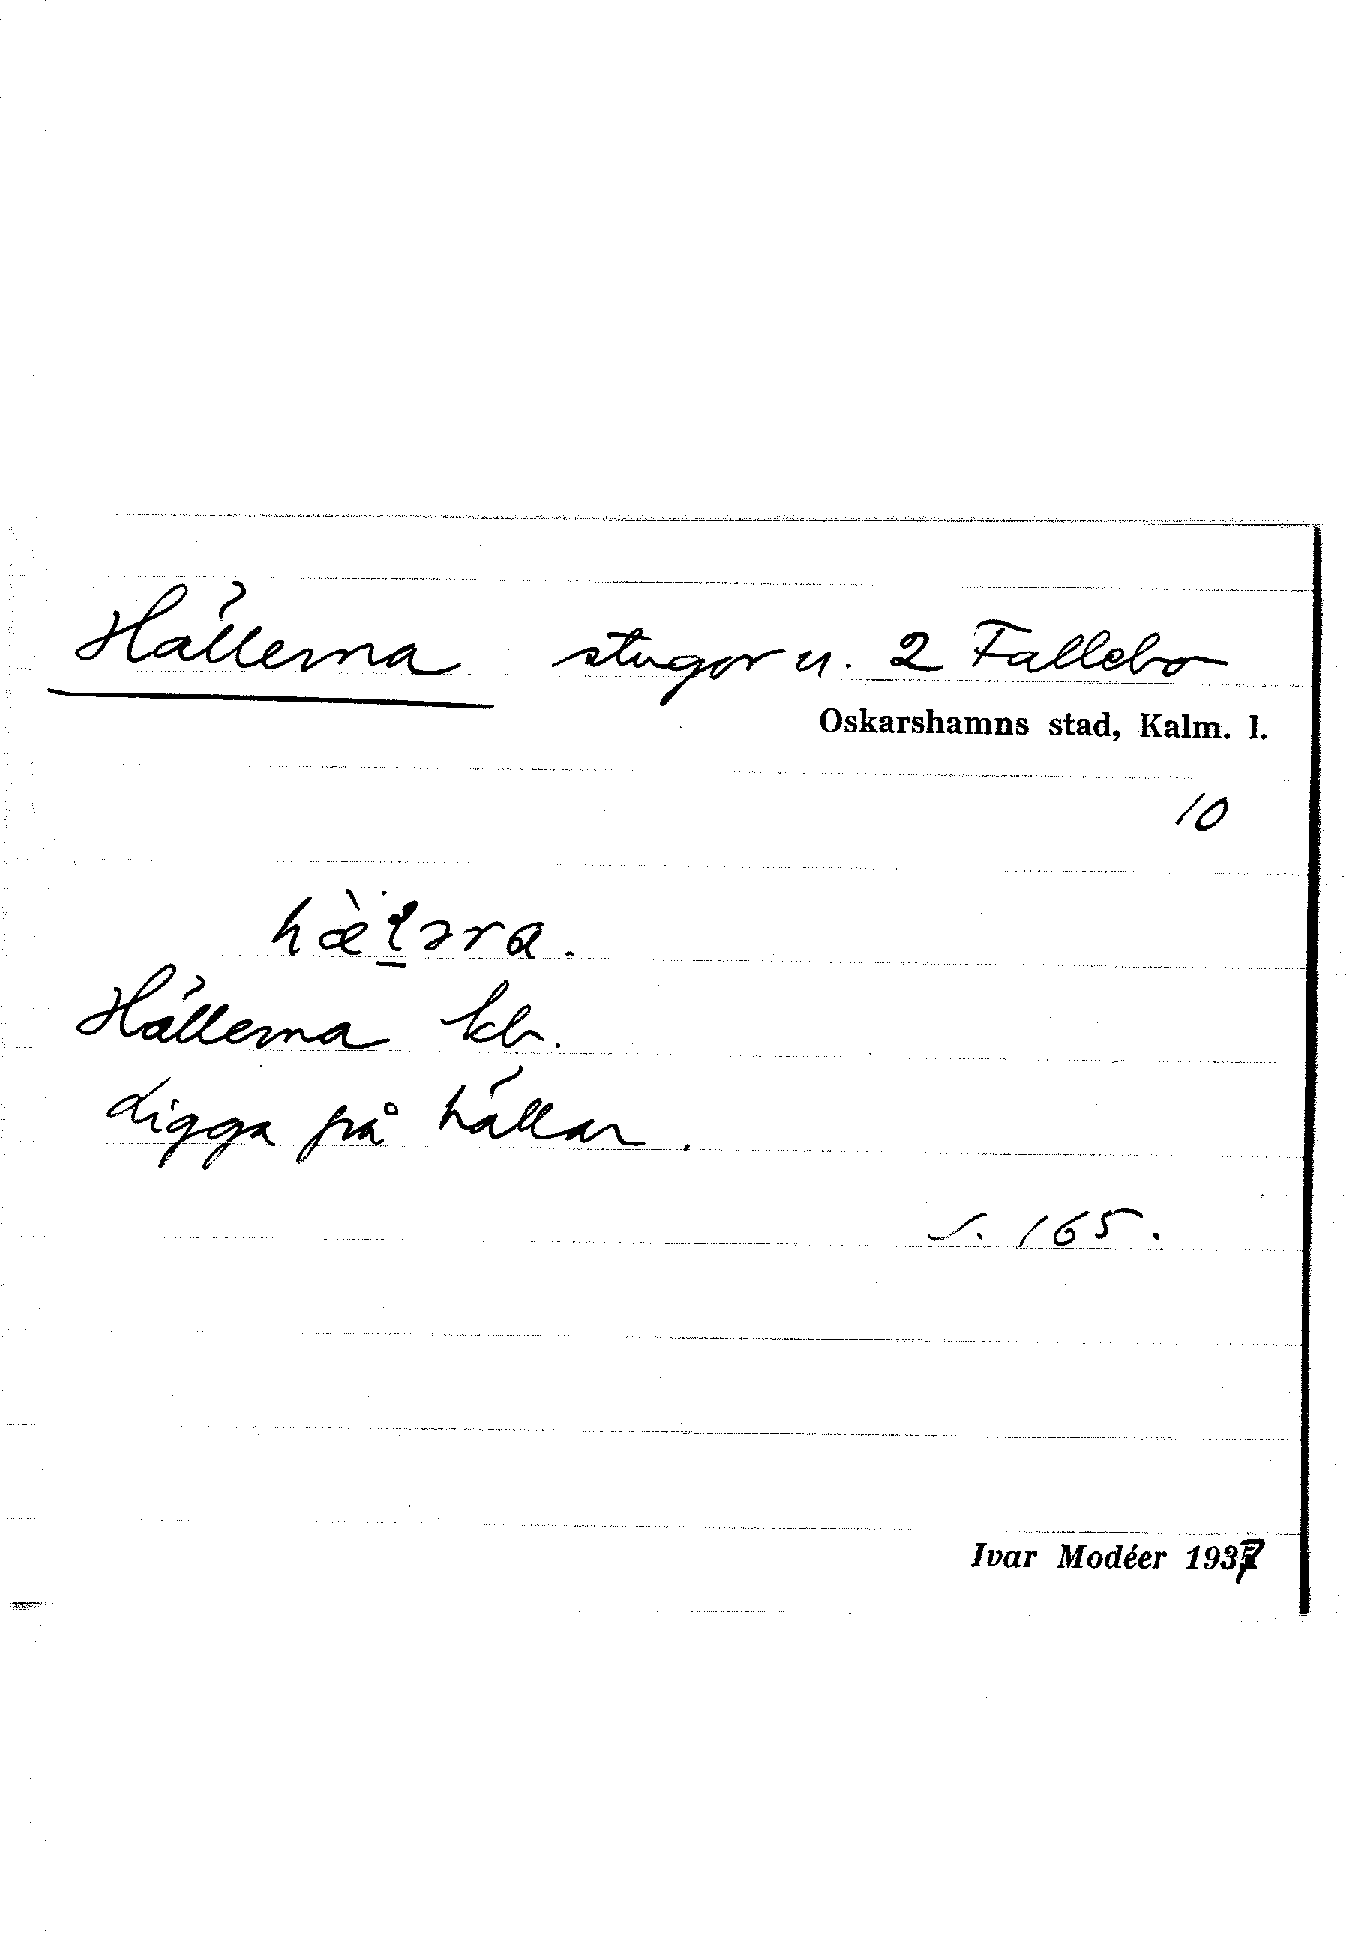 Hällerna stugor u. 2 Fallebo
Oskarshamns stad, Kalm. l.
10
hæ̀ləra.
Hällerna kb.
Ligga på hällar.
s. 165.
Ivar Modéer 1937